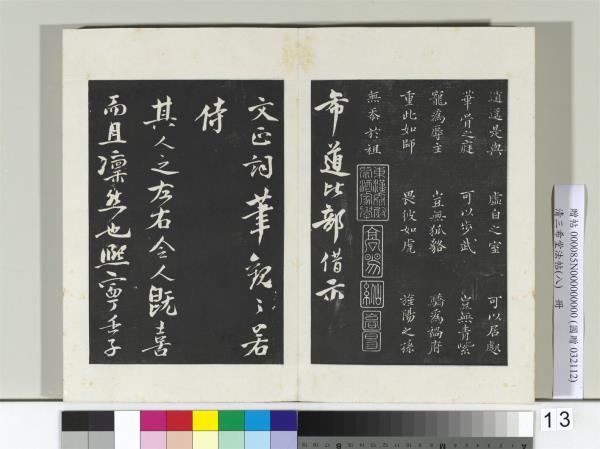 逍遥是與 虛白之室 可以居處
華胥之庭 可以步武 豈無青紫
寵為辱主 豈無狐貉 驕為禍府
重此如師 畏彼如虎 旌陽之孫
無忝於祖
希道比部借示
文正詞筆觀之若
侍
其人之左右令人既喜
而且凛然也熙寧壬子
贈帖 000085N000000000 (國贈 032112)
清三希堂法帖(八) 冊
13